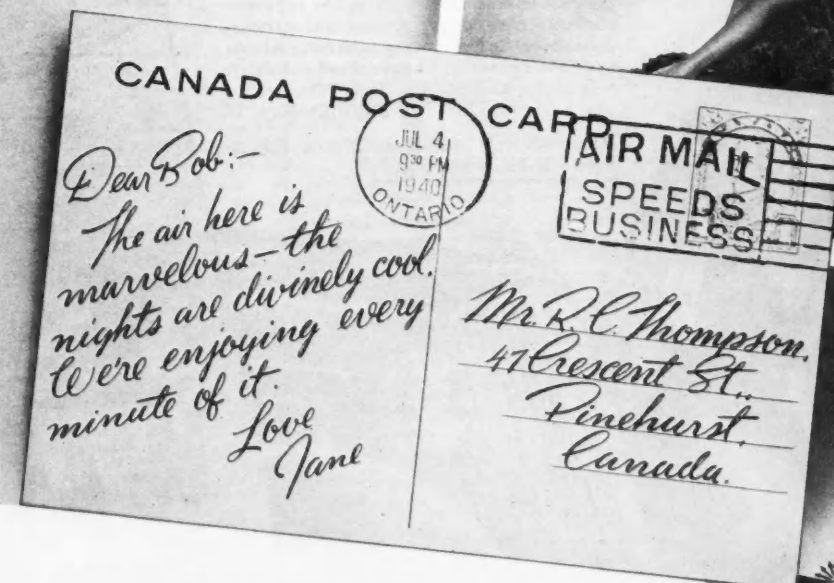 CANADA POST CARD
JUL 4
9³⁰ PM
1940
ONTARIO
AIR MAIL
SPEEDS
BUSINESS
Dear Bob:—
The air here is
marvelous—the
nights are divinely cool.
We're enjoying every
minute of it.
Love
Jane
Mr. R. C. Thompson.
47 Crescent St.,
Pinehurst.
Canada.